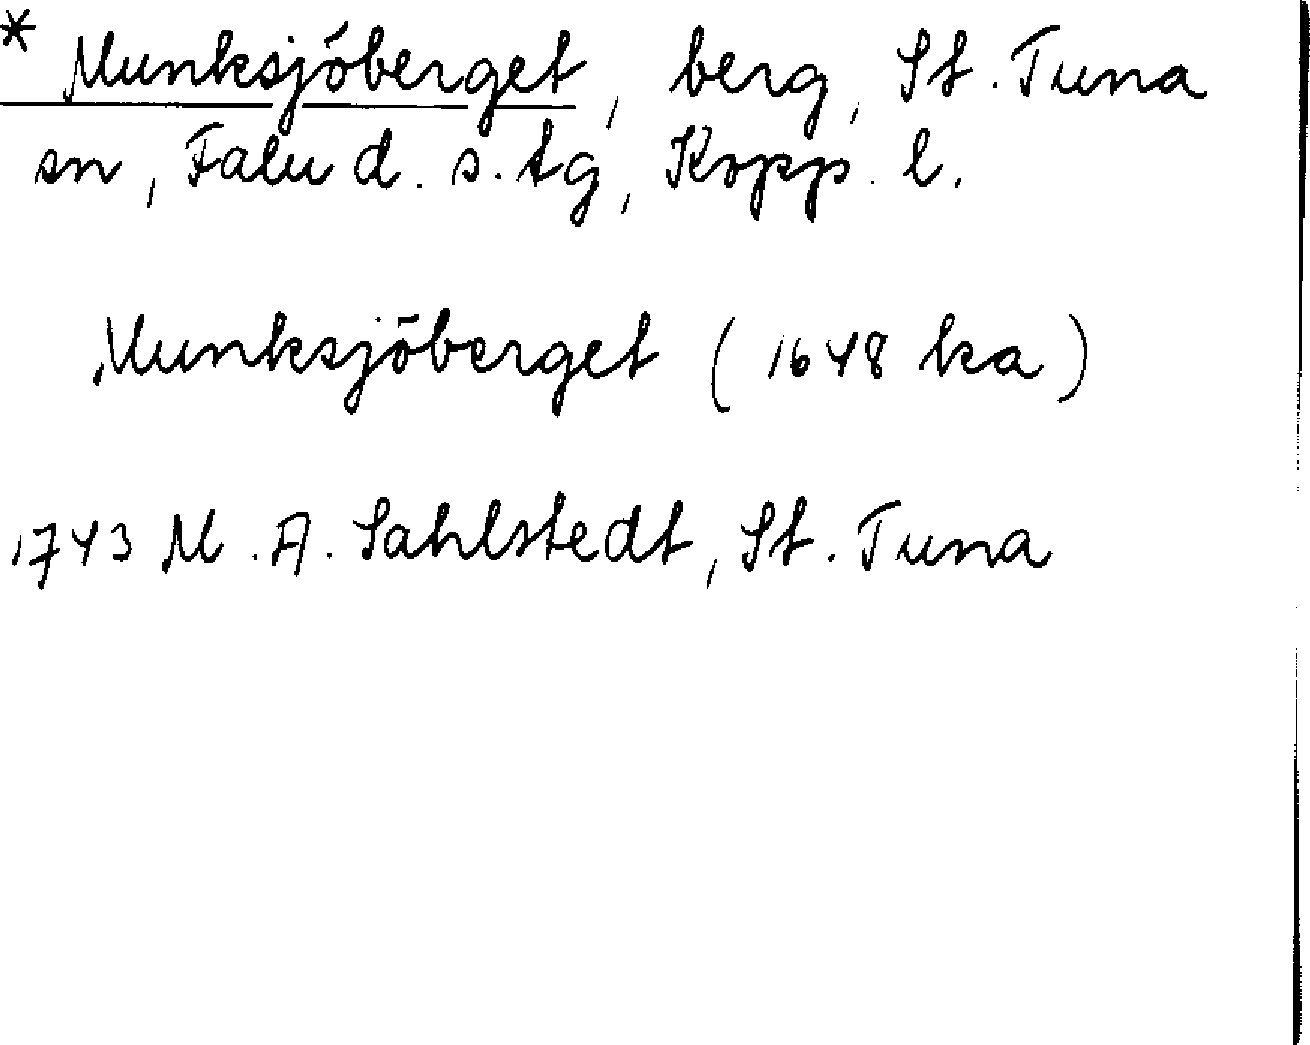 * Munksjöberget, berg, St. Tuna
sn, Falu d. s. tg, Kopp. l.
Munksjöberget (1648 ka)
1743 M. A. Sahlstedt, St. Tuna